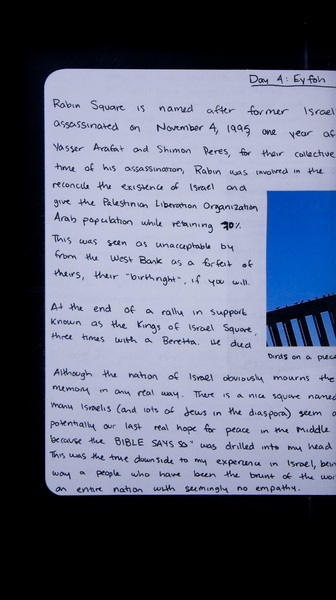 Day 4: Ey foh
Rabin Square is named after former Israel
assassinated on November 4, 1995, one year af
Yasser Arafat and Shimon Peres, for their collective
time of his assassination, Rabin was involved in the
reconcile the existence of Israel and
give the Palestinian Liberation Organization
Arab population while retaining 70%
This was seen as unacceptable by
from the West Bank as a forfeit of
theirs, their "birthright", if you will.
At the end of a rally in support
known as the Kings of Israel Square,
three times with a Beretta. He died
birds on a piece
Although the nation of Israel obviously mourns the
memory in any real way. There is a nice square named
many Israelis (and lots of Jews in the diaspora) seem
potentially our last real hope for peace in the Middle
because the BIBLE SAYS SO" was drilled into my head
This was the true downside to my experience in Israel, bein
way a people who have been the brunt of the wor
an entire nation with seemingly no empathy.